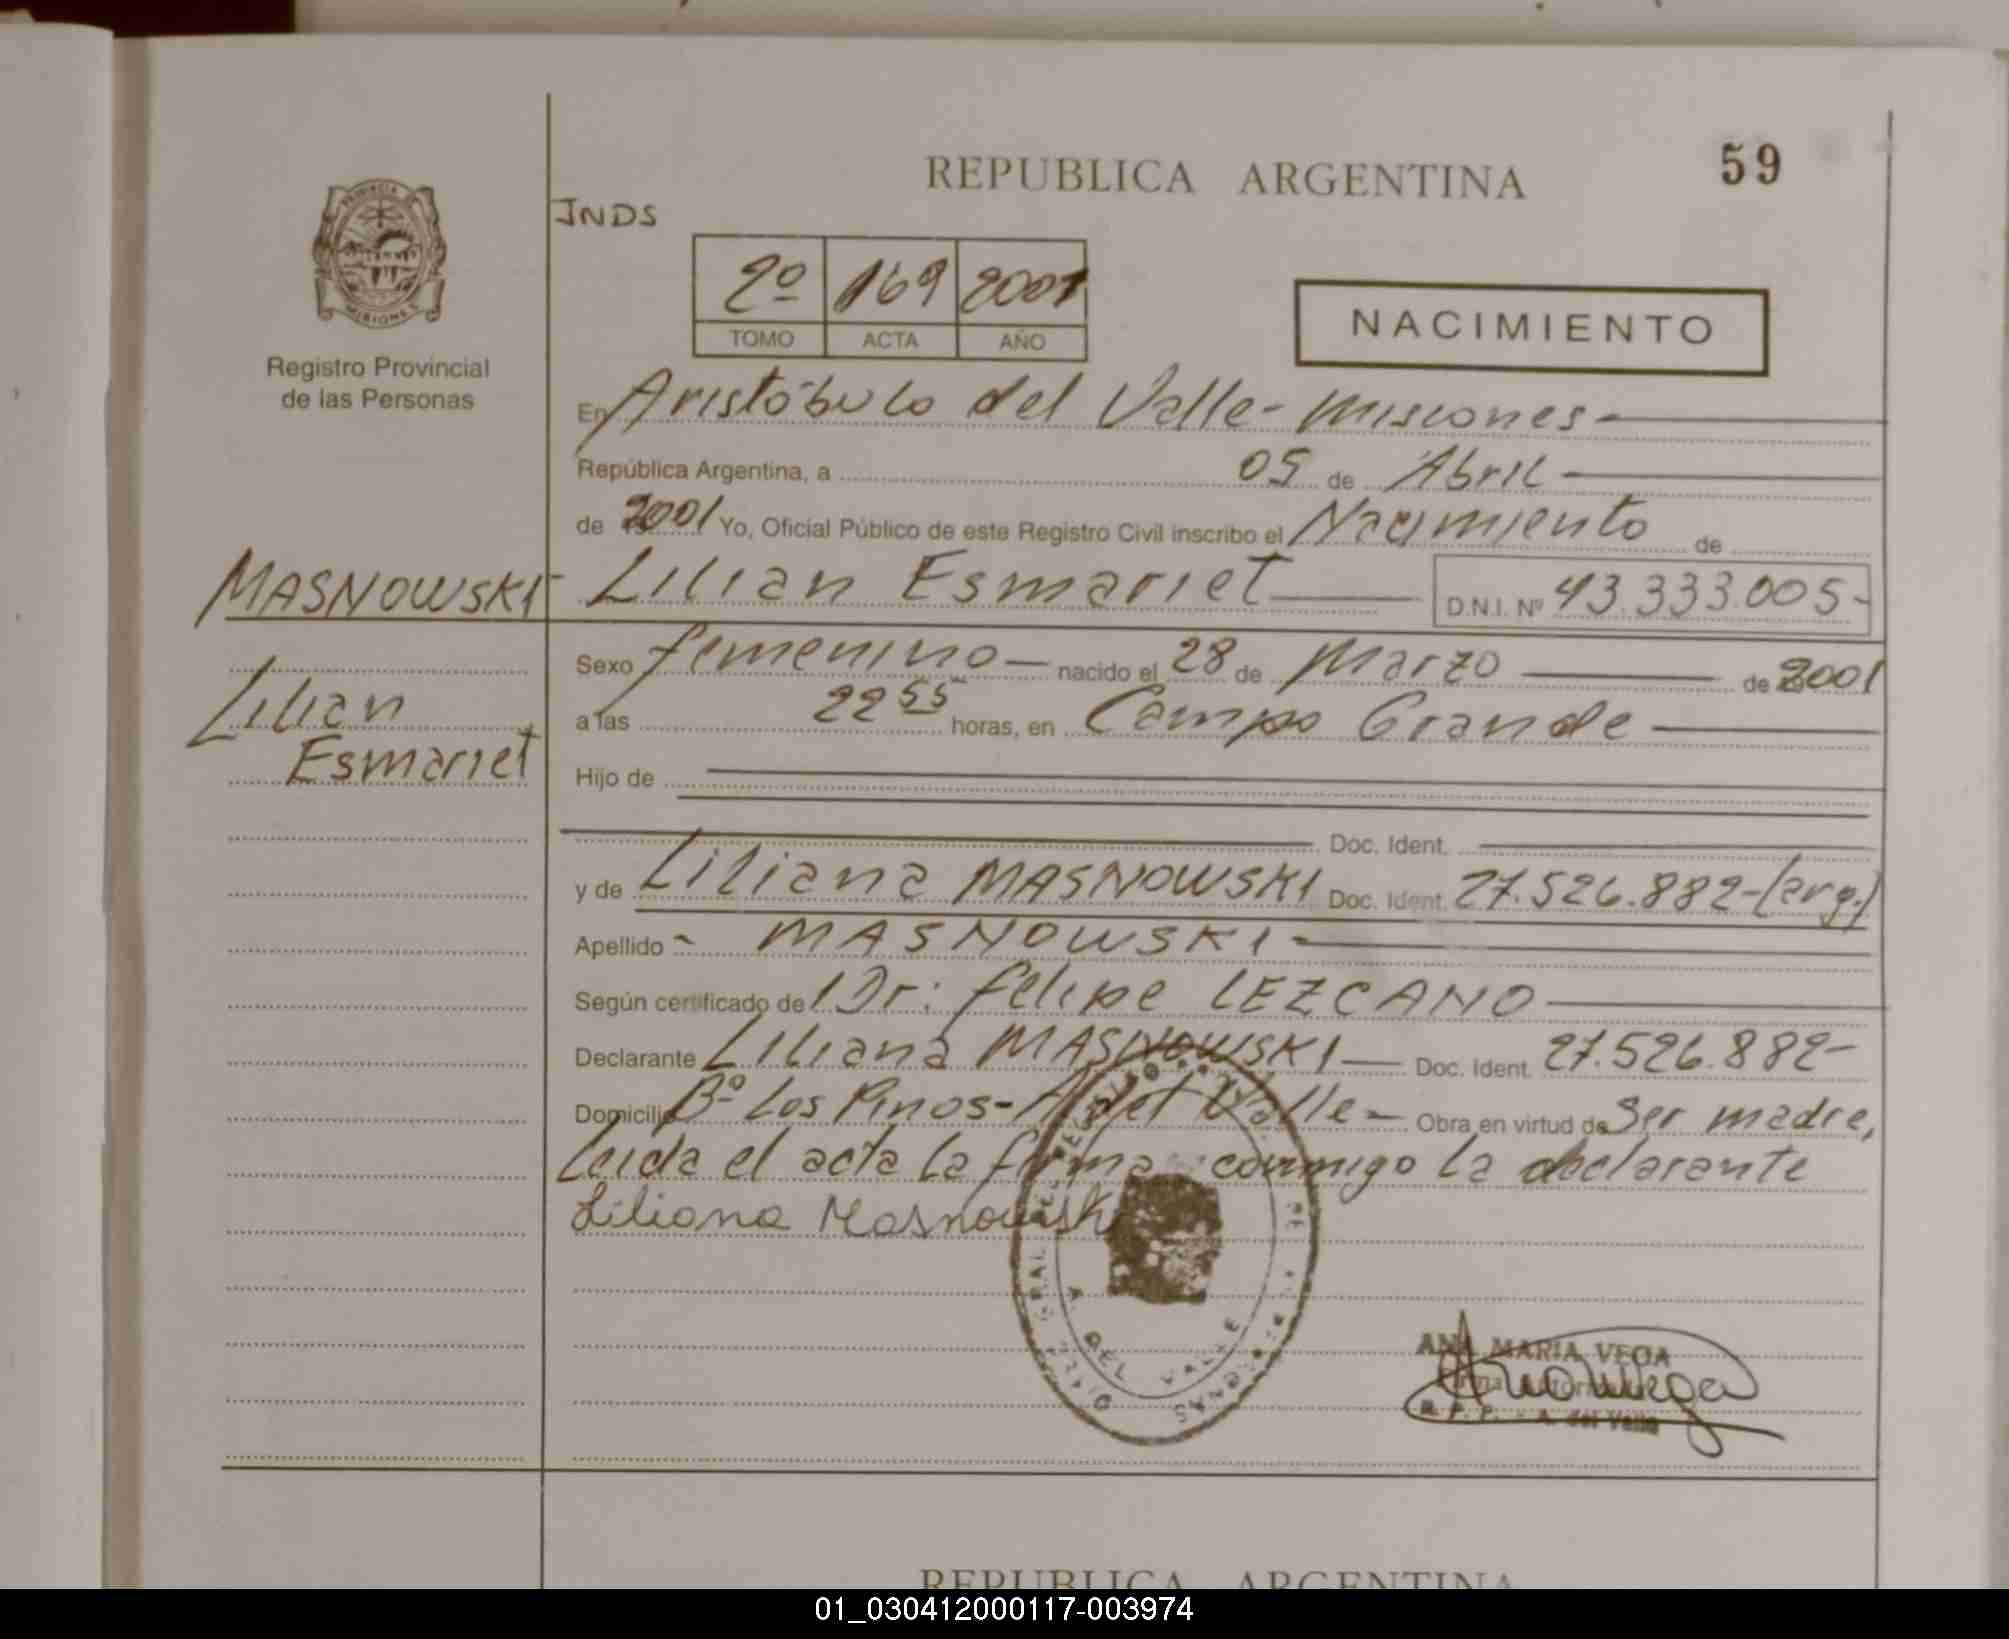 REPUBLICA ARGENTINA
59
JNDS
PROVINCIA DE
MISIONES
2º 169 2001
TOMO ACTA AÑO
NACIMIENTO
Registro Provincial
de las Personas
En Aristóbulo del Valle - Misiones -
República Argentina, a 05 de Abril
de 2001 Yo, Oficial Público de este Registro Civil inscribo el Nacimiento de
MASNOWSKI - Lilian Esmariet D.N.I. Nº 43.333.005-
Sexo femenino nacido el 28 de Marzo de 2001
Lilian
Esmariet
a las 22 55 horas, en Campo Grande
Hijo de
Doc. Ident.
y de Liliana MASNOWSKI Doc. Ident. 27.526.882-(arg.)
Apellido - MASNOWSKI -
Según certificado de Dr: Felipe LEZCANO
Declarante Liliana MASNOWSKI Doc. Ident. 27.526.882-
Domicilio Bº Los Pinos - A. del Valle - Obra en virtud de Ser madre,
Leida el acta la firma conmigo la declarante
Liliana Masnowski
A. DEL VALLE
ANA MARIA VEGA
R. P. P. - A. del Valle
REPUBLICA ARGENTINA
01_030412000117-003974